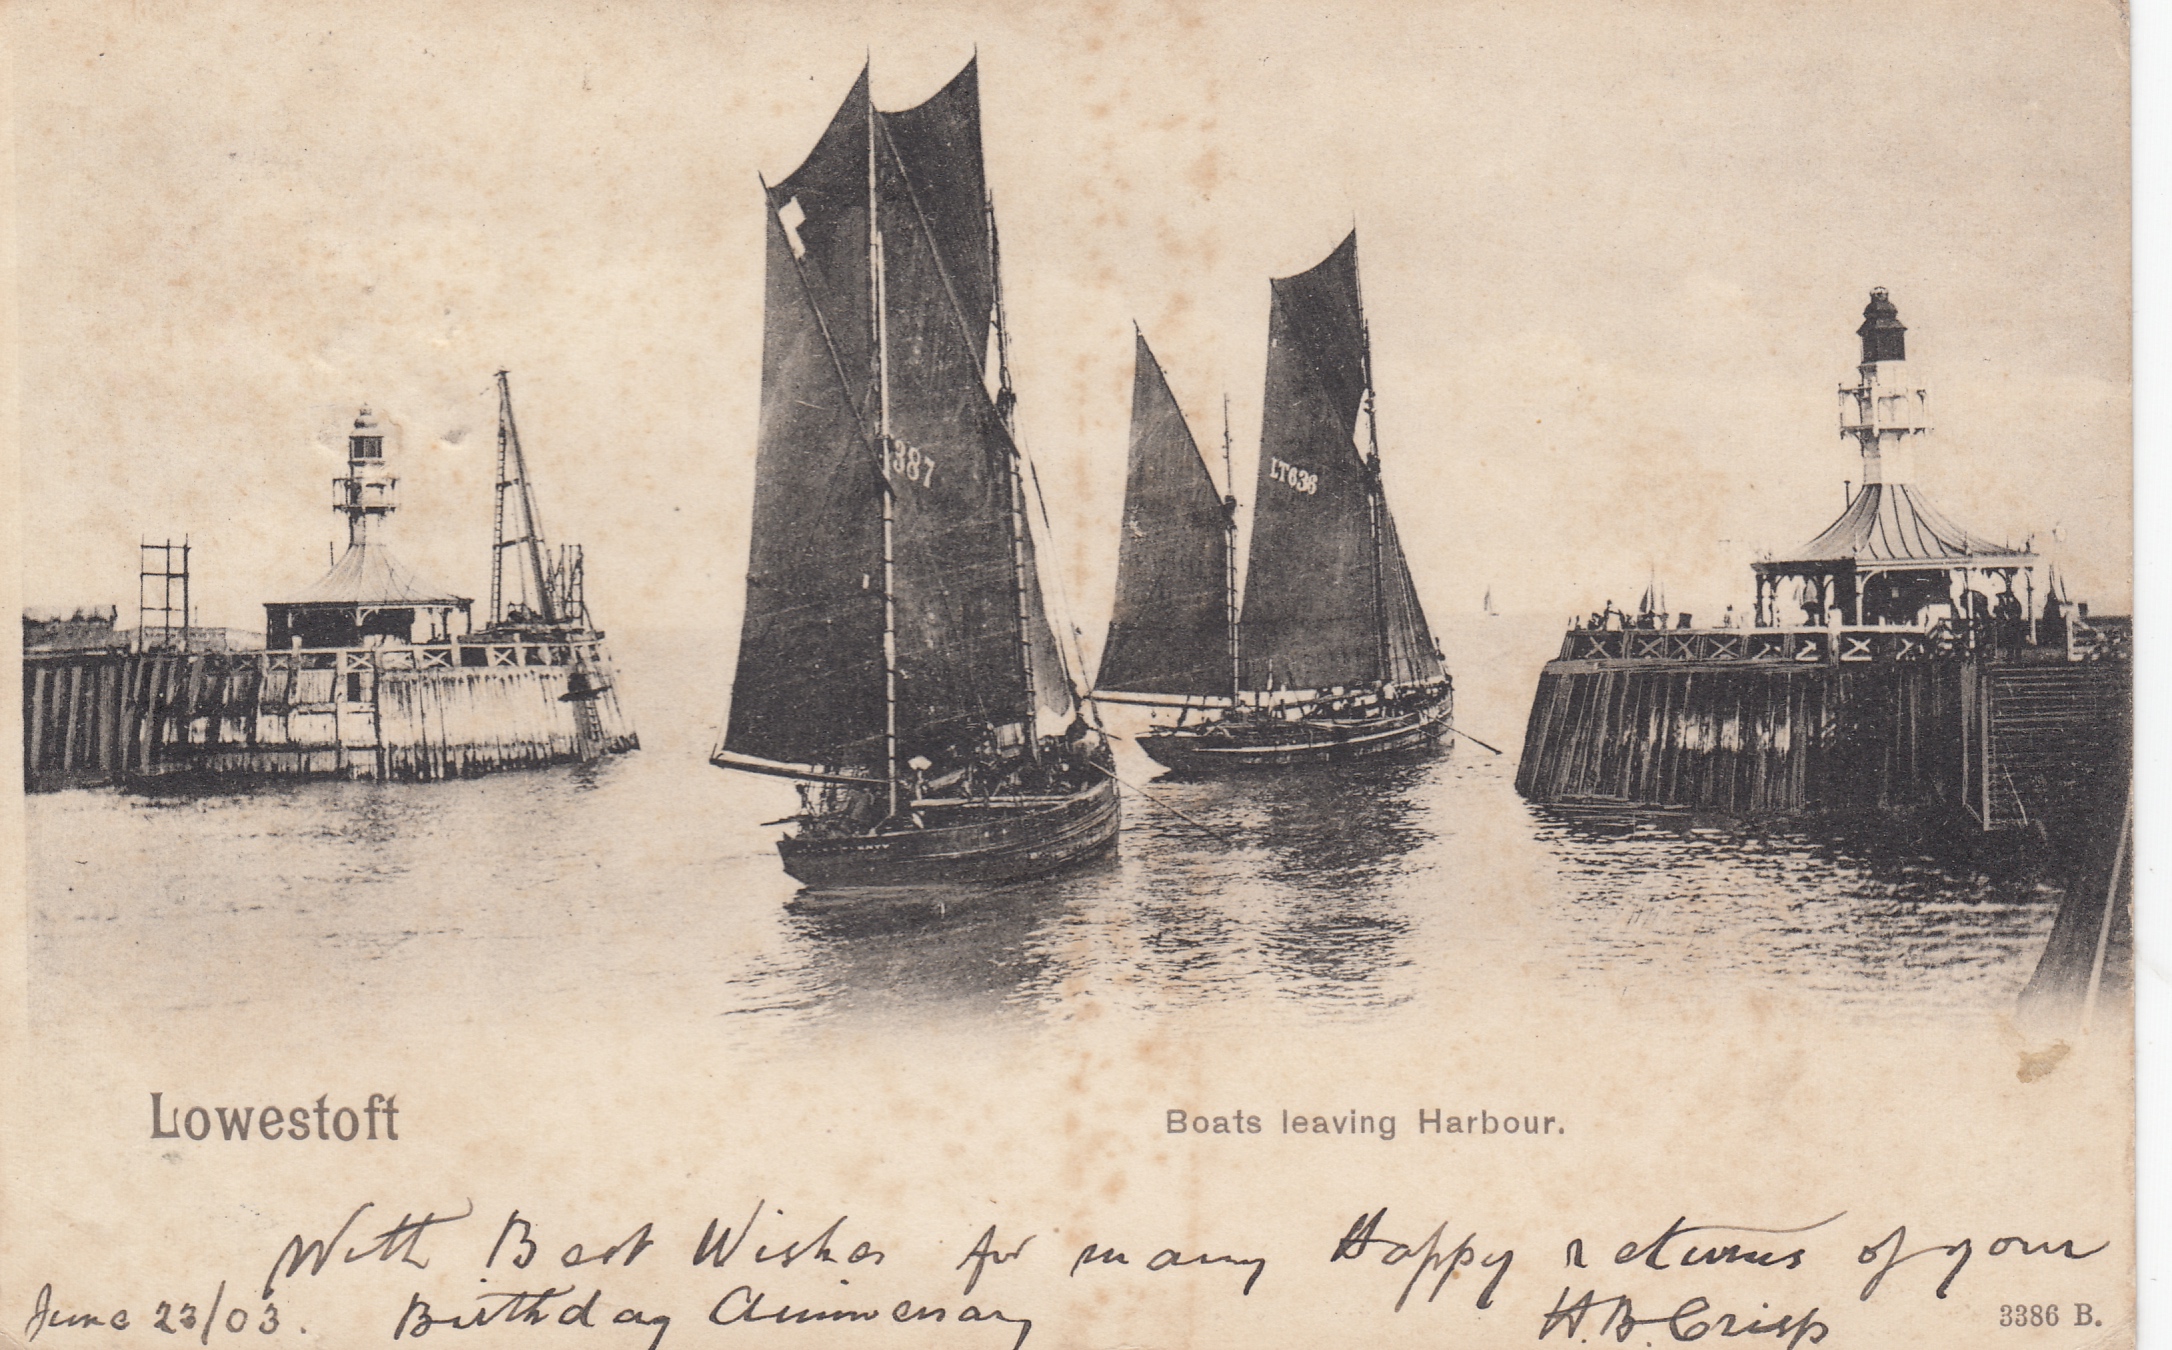 387
LT636
Lowestoft
Boats leaving Harbour.
With Best Wishes for many Happy returns of your
June 23/03. Birthday Anniversary H.B. Crisp
3386 B.